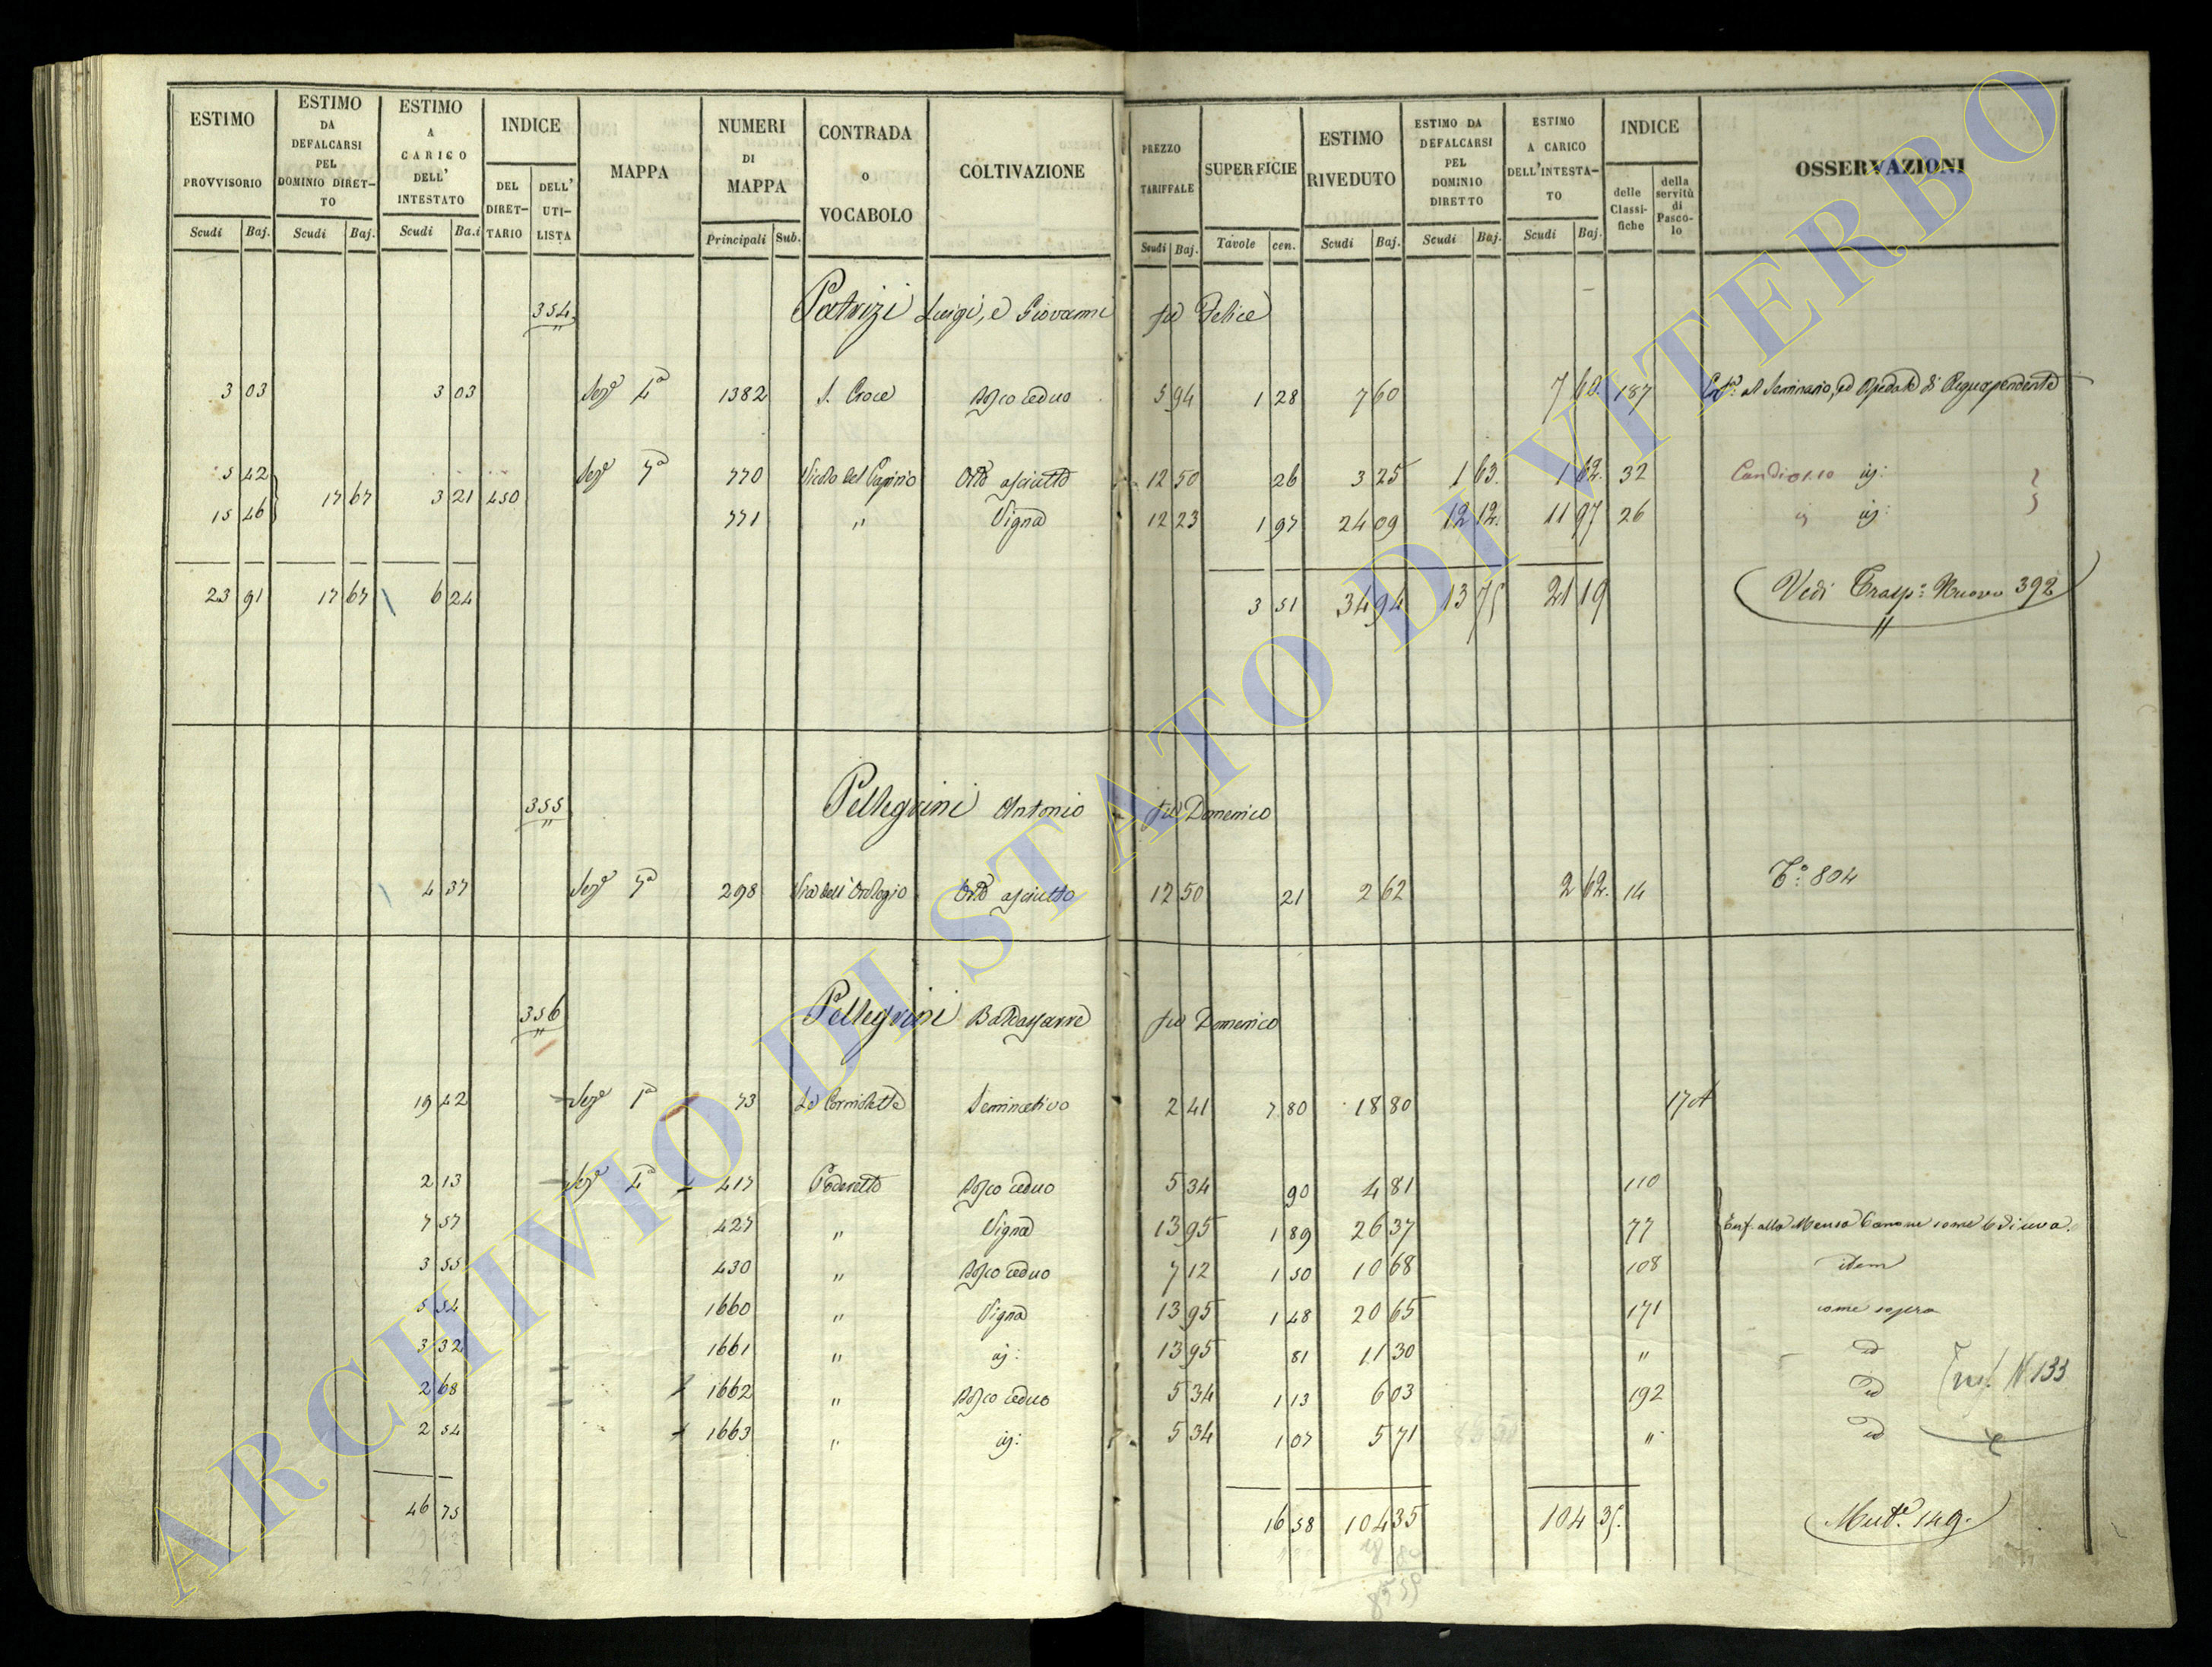 ESTIMO PROVVISORIO | ESTIMO DA DEFALCARSI PEL DOMINIO DIRET-TO | ESTIMO A CARICO DELL' INTESTATO | INDICE | MAPPA | NUMERI DI MAPPA | CONTRADA o VOCABOLO | COLTIVAZIONE | PREZZO TARIFFALE | SUPERFICIE | ESTIMO RIVEDUTO | ESTIMO DA DEFALCARSI PEL DOMINIO DIRETTO | ESTIMO A CARICO DELL'INTESTA-TO | INDICE | OSSERVAZIONI
DEL DIRET-TARIO | DELL' UTI-LISTA | delle Classi-fiche | della servitù di Pasco-lo
Scudi | Baj. | Scudi | Baj. | Scudi | Ba.i | Principali | Sub. | Scudi | Baj. | Tavole | cen. | Scudi | Baj. | Scudi | Baj. | Scudi | Baj.
354 Patrizi Luigi, e Giovanni fu Felice
3 03 | 3 03 | Sez.e 4a | 1382 | S. Croce | Bosco ceduo | 5 94 | 1 28 | 7 60 | 7 60 | 187 | al Seminario, ed Ospedale di Acquapendente
5 42 | Sez.e 7a | 770 | Vicolo del | Orto asciutto | 12 50 | 26 | 3 25 | 1 63 | 1 62 | 32
17 67 | 3 21 | 450
15 46 | 771 | " | Vigna | 12 23 | 1 97 | 24 09 | 12 12 | 11 97 | 26
23 91 | 17 67 | 6 24 | 3 51 | 34 94 | 13 75 | 21 19 | Vedi Trasp: Nuovo 392
355 Pellegrini Antonio fu Domenico
4 37 | Sez.e 7a | 298 | Via dell'Orologio | Orto asciutto | 12 50 | 21 | 2 62 | 2 62 | 14 | T.o 804
356 Pellegrini Baldassarre fu Domenico
19 42 | Sez.e 1a | 73 | Le | Seminativo | 2 41 | 7 80 | 18 80 | 17 A
2 13 | Sez.e 4a | 417 | Poderetto | Bosco ceduo | 5 34 | 90 | 4 81 | 110
7 57 | 427 | " | Vigna | 13 95 | 1 89 | 26 37 | 77 | Enf. alla Mensa Canone some 6 di uva.
3 55 | 430 | " | Bosco ceduo | 7 12 | 1 50 | 10 68 | 108 | item
5 54 | 1660 | " | Vigna | 13 95 | 1 48 | 20 65 | 171 | come sopra
3 32 | 1661 | " | id: | 13 95 | 81 | 11 30 | " | id
2 68 | 1662 | " | Bosco ceduo | 5 34 | 1 13 | 6 03 | 192 | id | N 133
2 54 | 1663 | " | id: | 5 34 | 1 07 | 5 71 | " | id
46 75 | 16 58 | 104 35 | 104 35 | Mut.e 149.
18 80
85 55
ARCHIVIO DI STATO DI VITERBO